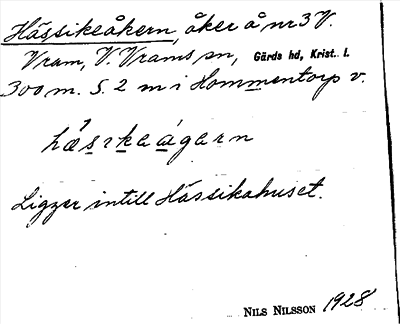 Hässikeåkern, åker å nr 3 V.
Vram, V. Vrams sn, Gärds hd, Krist. l.
300 m. S. 2 m i Hommentorp v.
hä́sikaágarn
Ligger intill Hässikahuset.
NILS NILSSON 1928